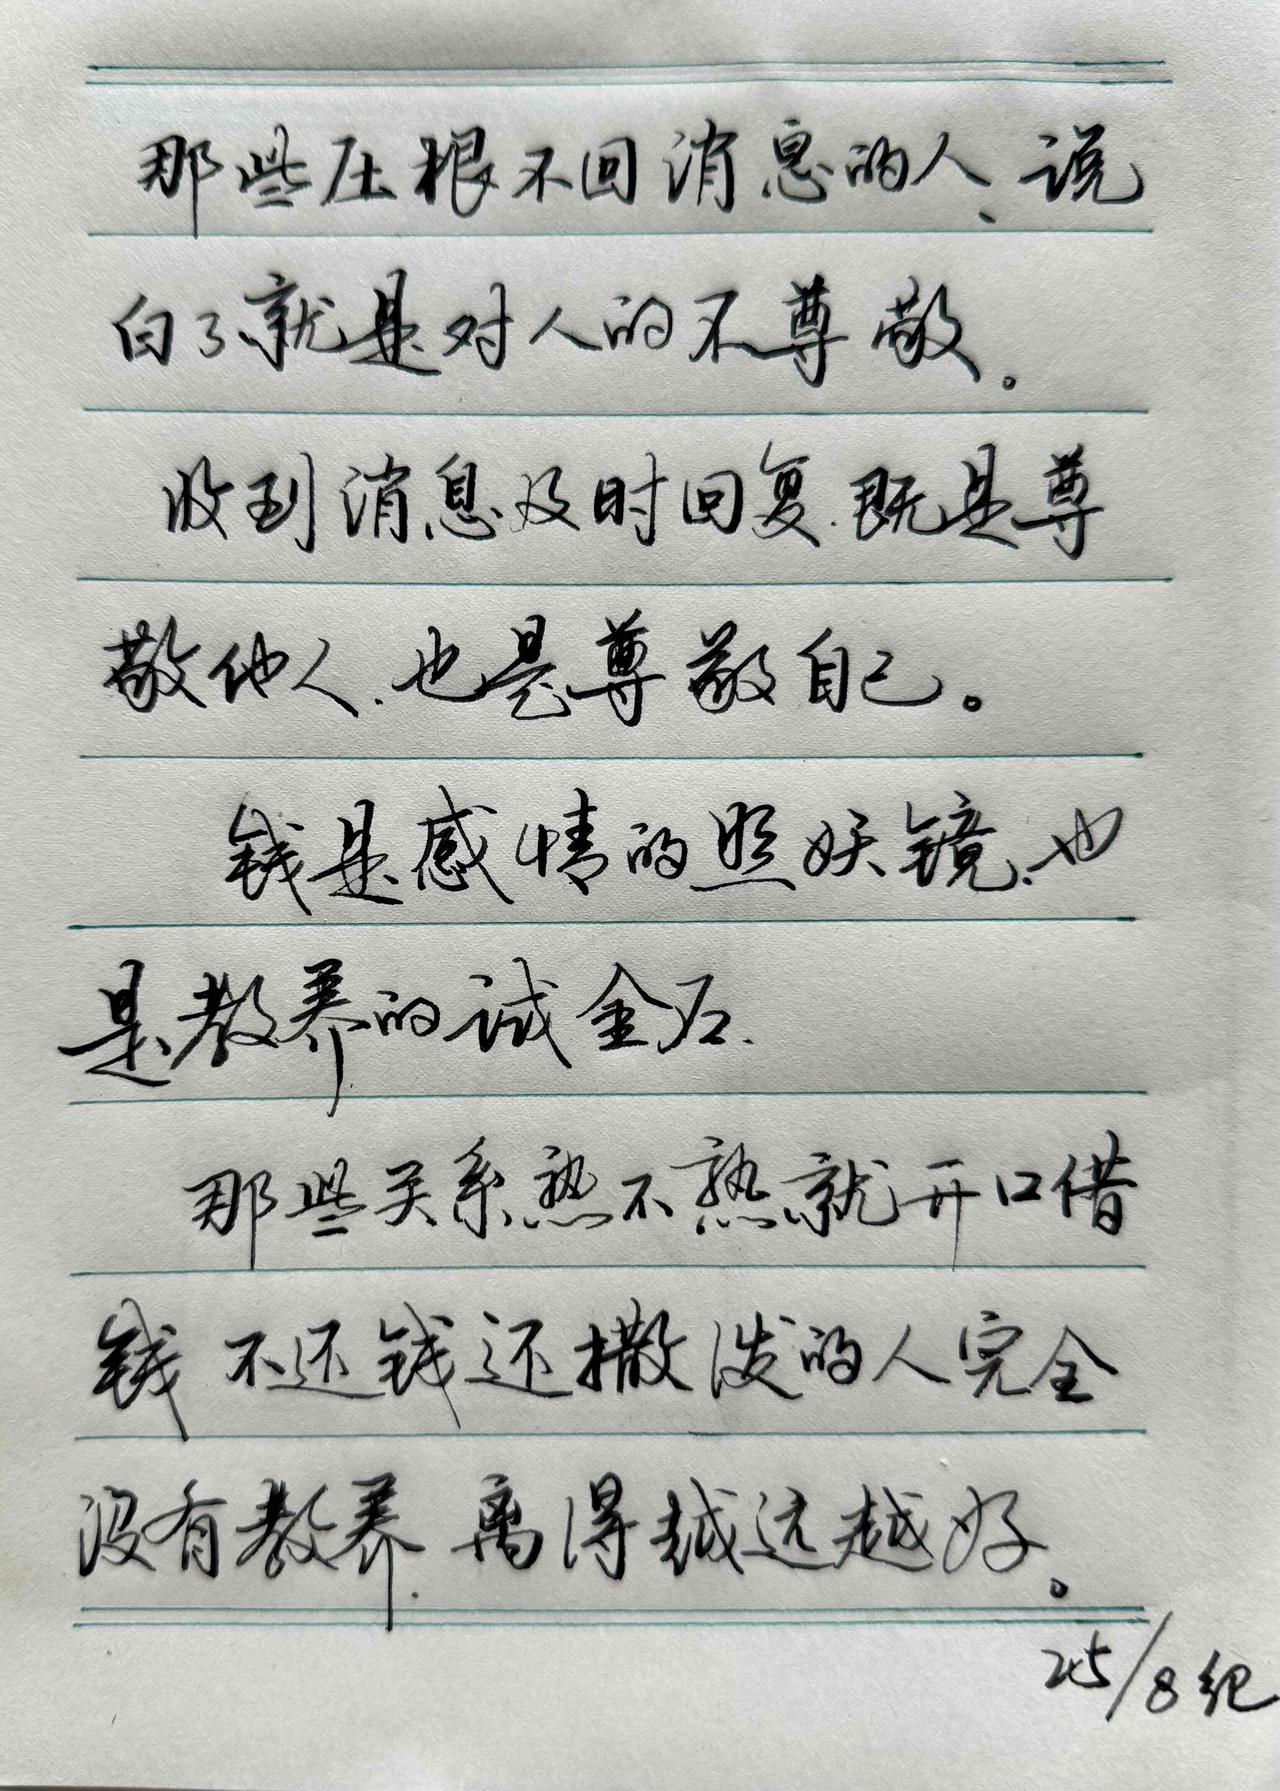 那些压根不回消息的人、说
白了就是对人的不尊敬。
收到消息及时回复.既是尊
敬他人.也是尊敬自己。
钱是感情的照妖镜.也
是教养的试金石.
那些关系熟不熟就开口借
钱 不还钱还撒泼的人完全
没有教养.离得越远越好。
25/8纪